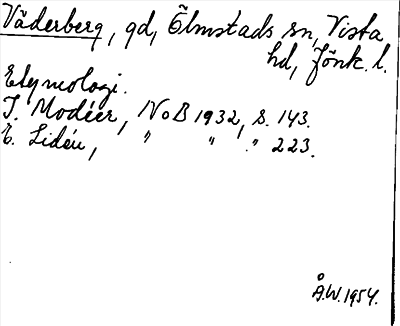 Väderberg, gd, Ölmstads sn, Vista
hd, Jönk. l.
Etymologi.
I. Modéer, NoB 1932, s. 143.
E. Lidén, " " " 223.
Å.W. 1954.